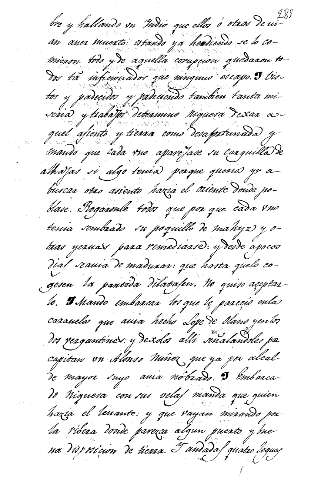 289
bre y hallando un Indio que ellos ó otros devi-
an aver muerto: estando ya hediendo se lo co-
mieron todo y de aquella corrupcion quedaron to-
dos tan inficionados que ninguno escapo. Vis-
tos y padecidos y padeciendo tambien tanta mi-
seria y trabajos determino Niquesa dexar a-
quel asiento y tierra como desafortunada y
mando que cada uno aparejase su carguilla de
alhajas si algo tenia porque queria yr a
buscar otro asiento hazia el oriente donde po-
blase. Rogaronle todos que por que cada uno
tenia sembrado su poquillo de mahyz y o-
tras yervas para remediarse: y desde a pocos
dias se avia de madurar: que hasta que lo co-
gesen la partida dilatasen. No quiso aceptar-
lo. Mando embarcar los que le parecio en la
caravela que avia hecho Lope de Olano y en los
dos vergantines. y dexolos alli señalandoles por
capitan un Alonso Nuñez que ya por alcal-
de mayor suyo avia nõbrado. Embarca-
do Niquesa con sus velas manda que guien
hazia el levante. y que vayan mirando por
la ribera donde parezca algun puerto y bue-
na disposicion de tierra. Y andadas quatro leguas